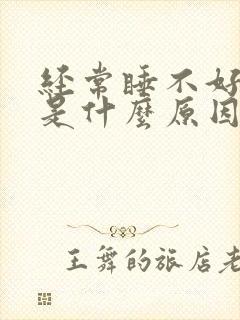 经常睡不好
是什麼原因
王舞的旅店老